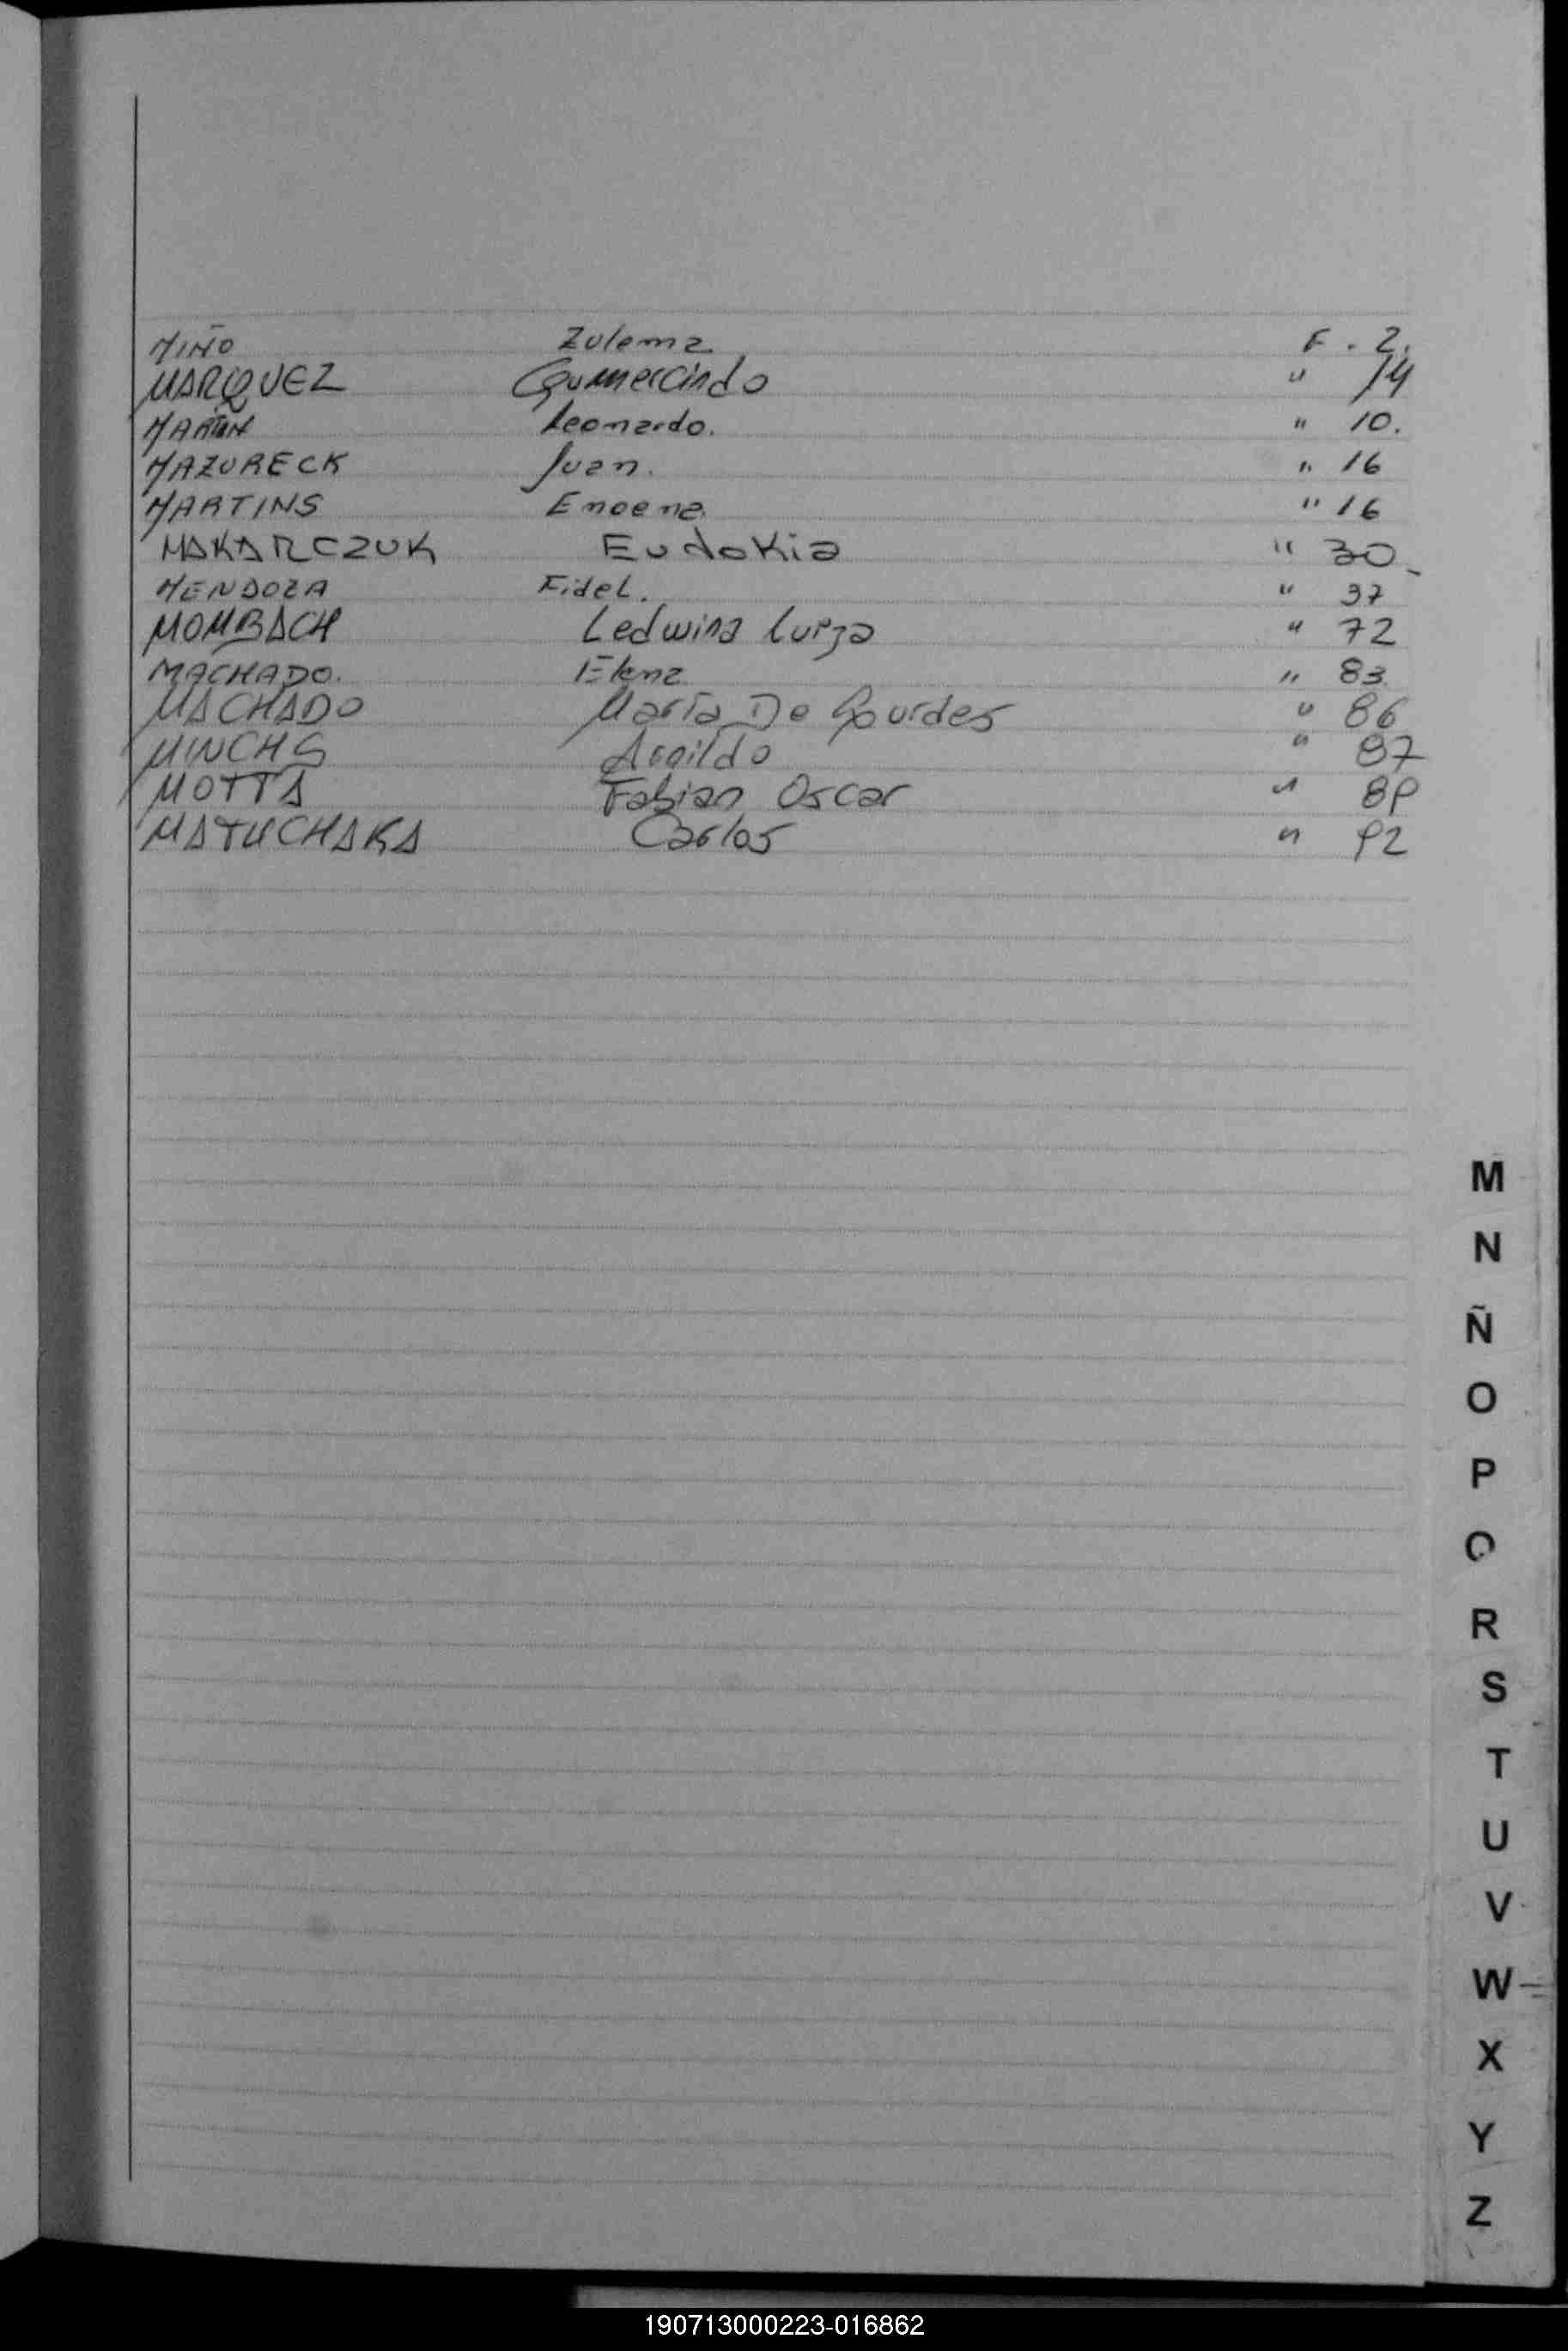 MIÑO Zulema F. 2.
MARQUEZ Gumercindo " 14
MARTIN Leonardo. " 10.
MAZURECK Juan. " 16
MARTINS Emoena. " 16
MAKARCZUK Eudokia " 30
MENDOZA Fidel. " 37
MOMBACH Ledwina Lurza " 72
MACHADO. Elena " 83
MACHADO María De Lourdes " 86
MINCHS Argildo " 87
MOTTA Fabian Oscar " 89
MATUCHAKA Carlos " 92
M
N
Ñ
O
P
Q
R
S
T
U
V
W
X
Y
Z
190713000223-016862